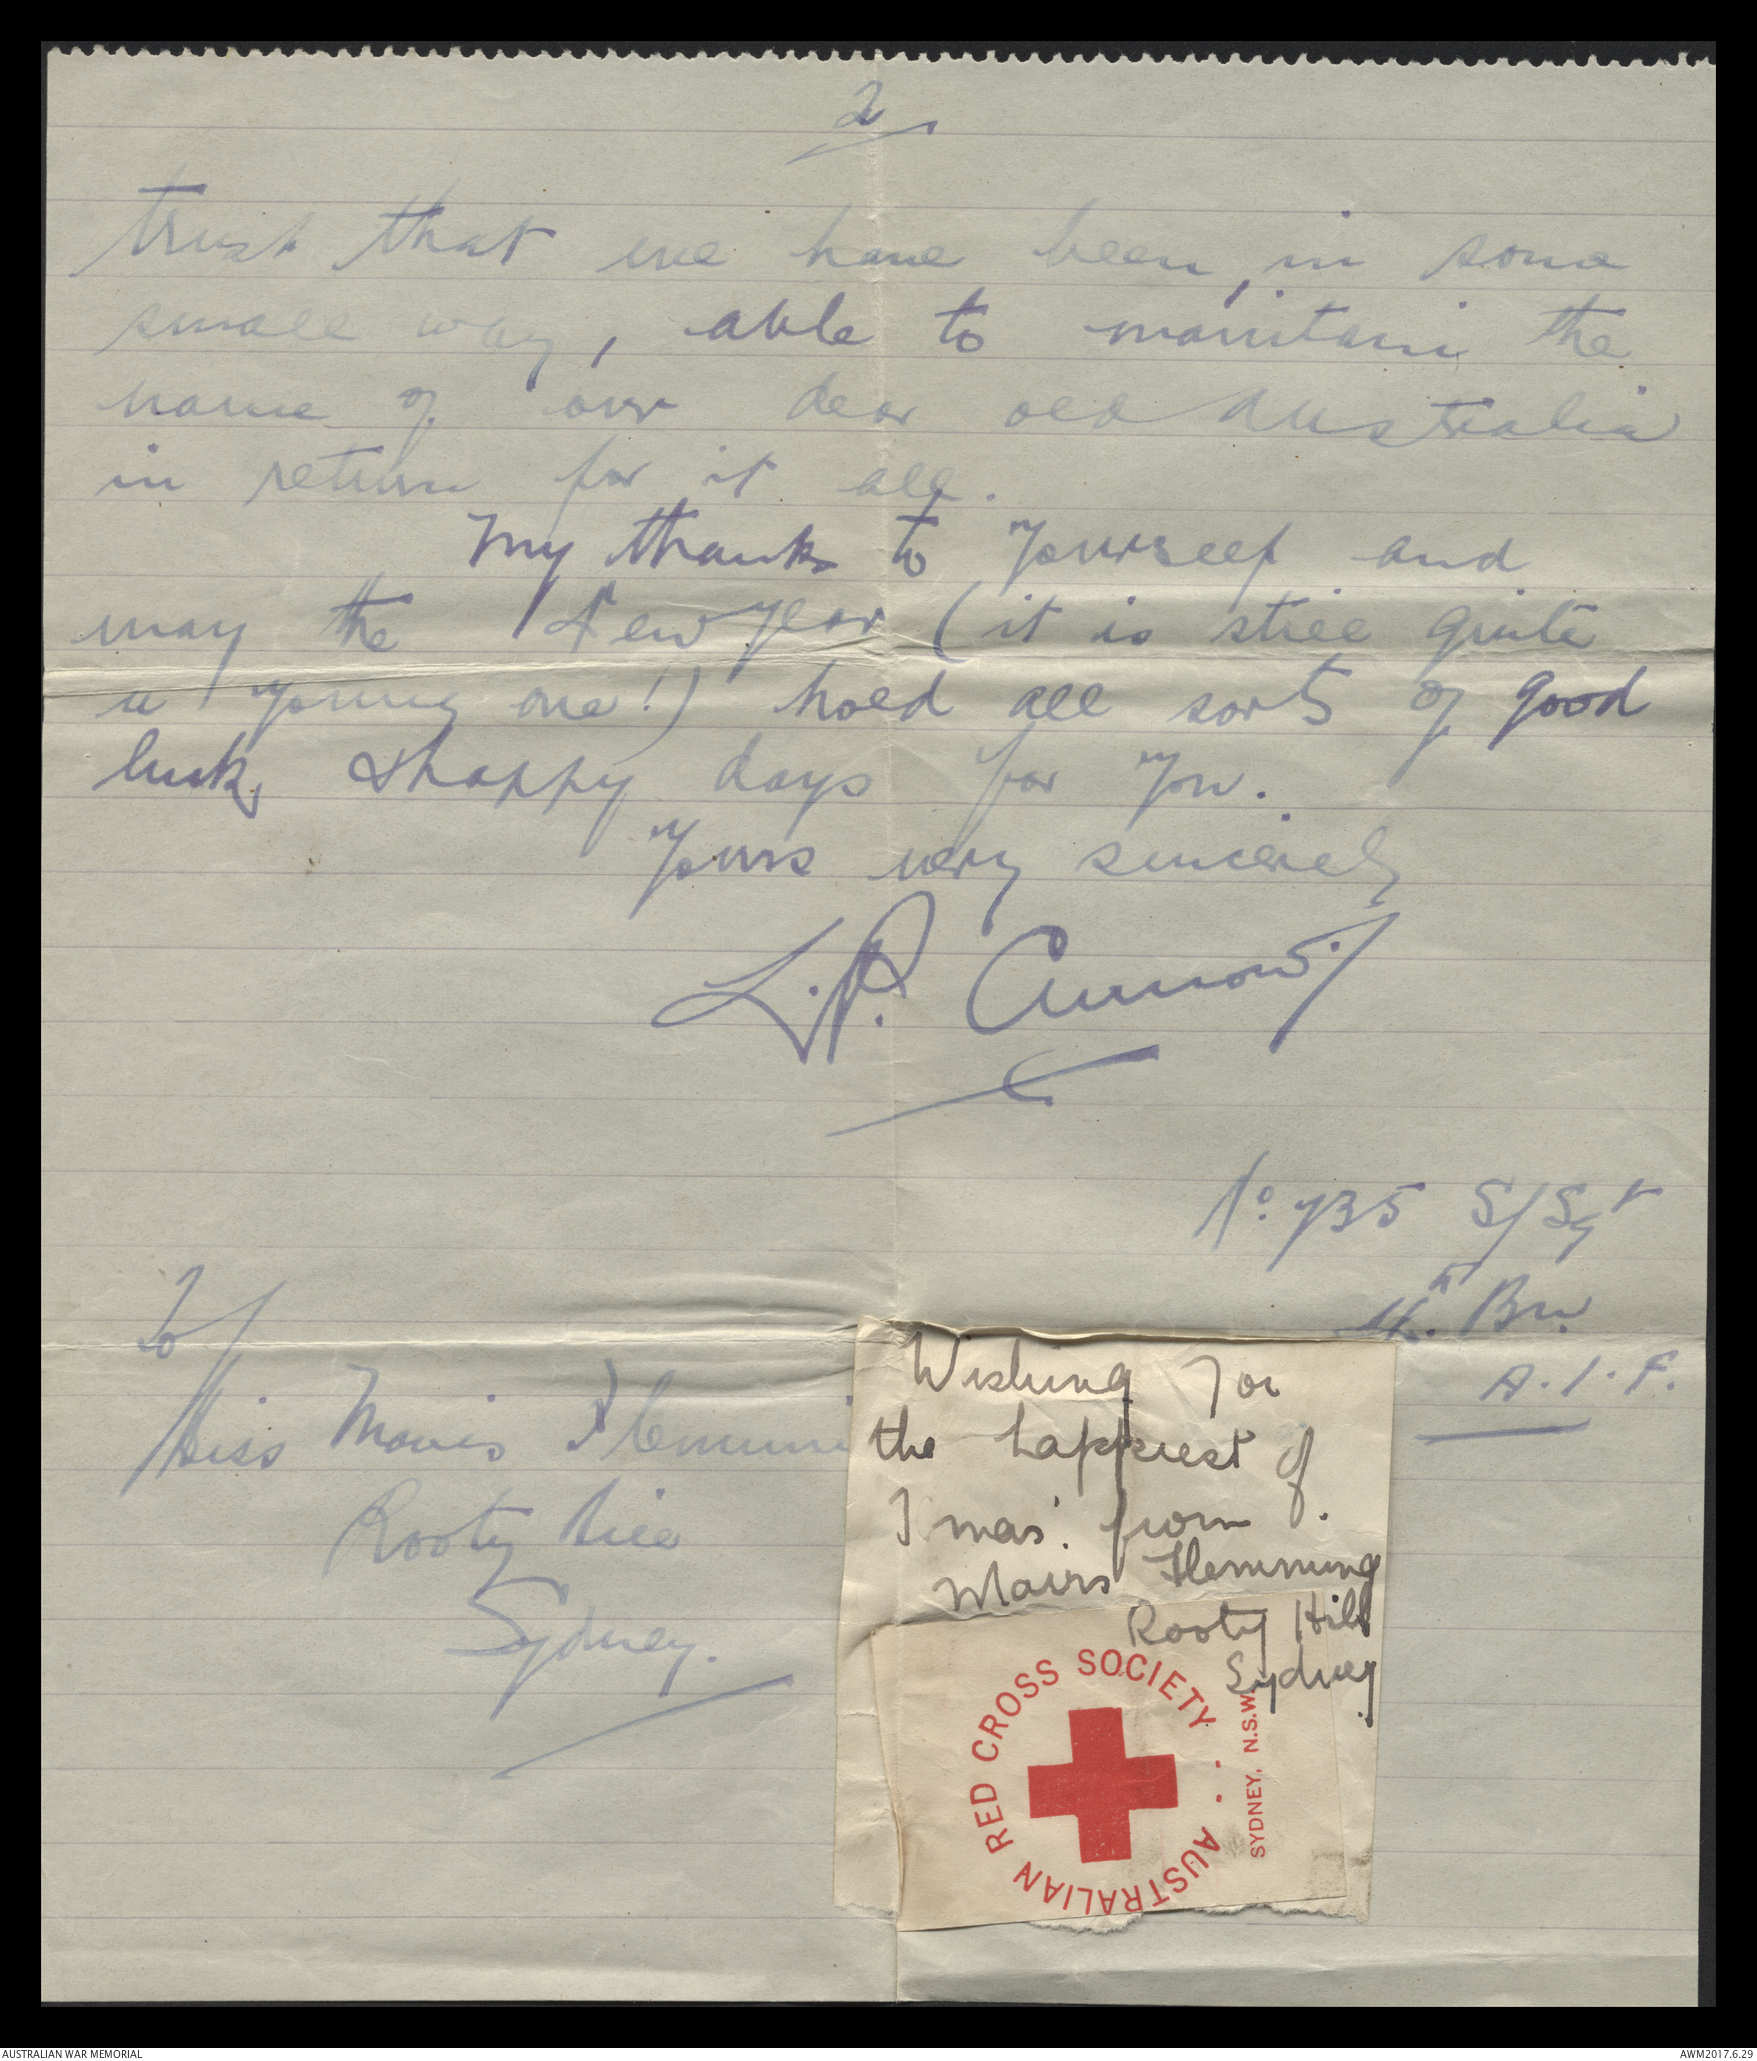 2
trust that we have been, in some
small way, able to maintain the
name of our dear old Australia
in return for it all.
My thanks to yourself and
may the New Year (it is still quite
a young one!) hold all sorts of good
luck, & happy days for you.
Yours very sincerely
L.P. Curnow.
No. 735 S/Sgt
4th. Bn.
A.I.F.
To/
Miss Mavis Flemmi
Rooty Hill
Sydney.
Wishing You
the happiest of
Xmas'. from.
Mavis Flemming
Rooty Hill
Sydney
AUSTRALIAN RED CROSS SOCIETY
SYDNEY, N.S.W.
AUSTRALIAN WAR MEMORIAL
AWM2017.6.29